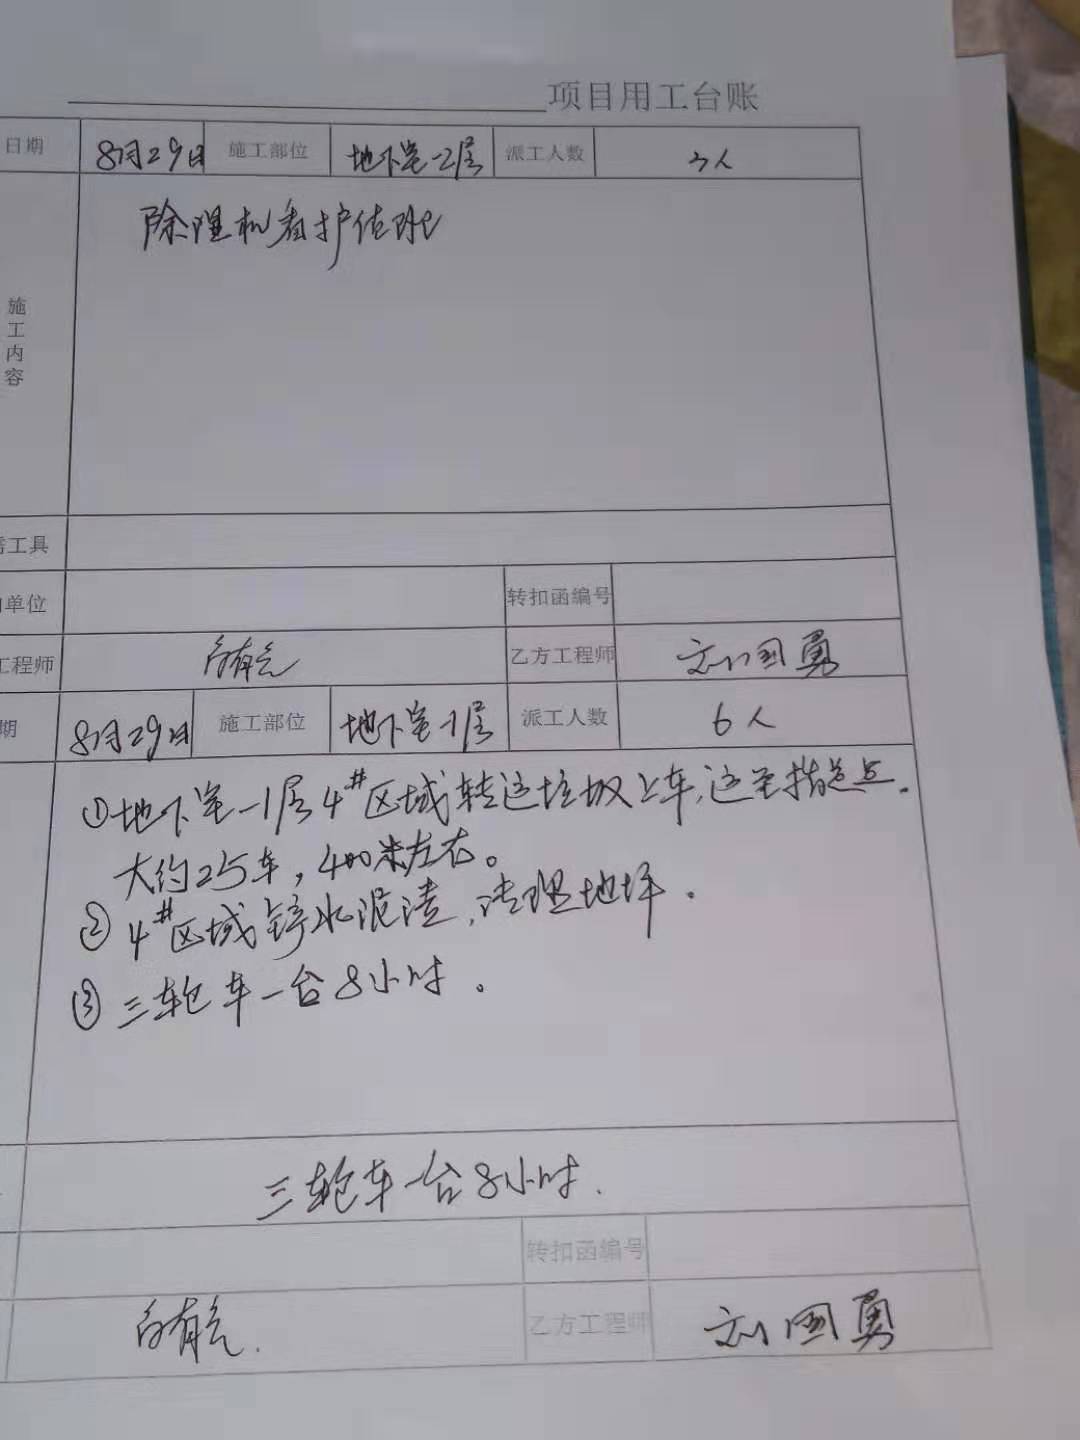 项目用工台账
日期 8月29日 施工部位 地下室-2层 派工人数 3人
施工内容
除湿机看护
工具
单位 转扣函编号
工程师 乙方工程师 刘国勇
期 8月29日 施工部位 地下室-1层 派工人数 6人
①地下室-1层4#区域转运垃圾上车,运至指定点.
大约25车,400米左右。
②4#区域铲水泥渣,清理地坪.
③三轮车一台8小时.
三轮车一台8小时.
转扣函编号
乙方工程师 刘国勇